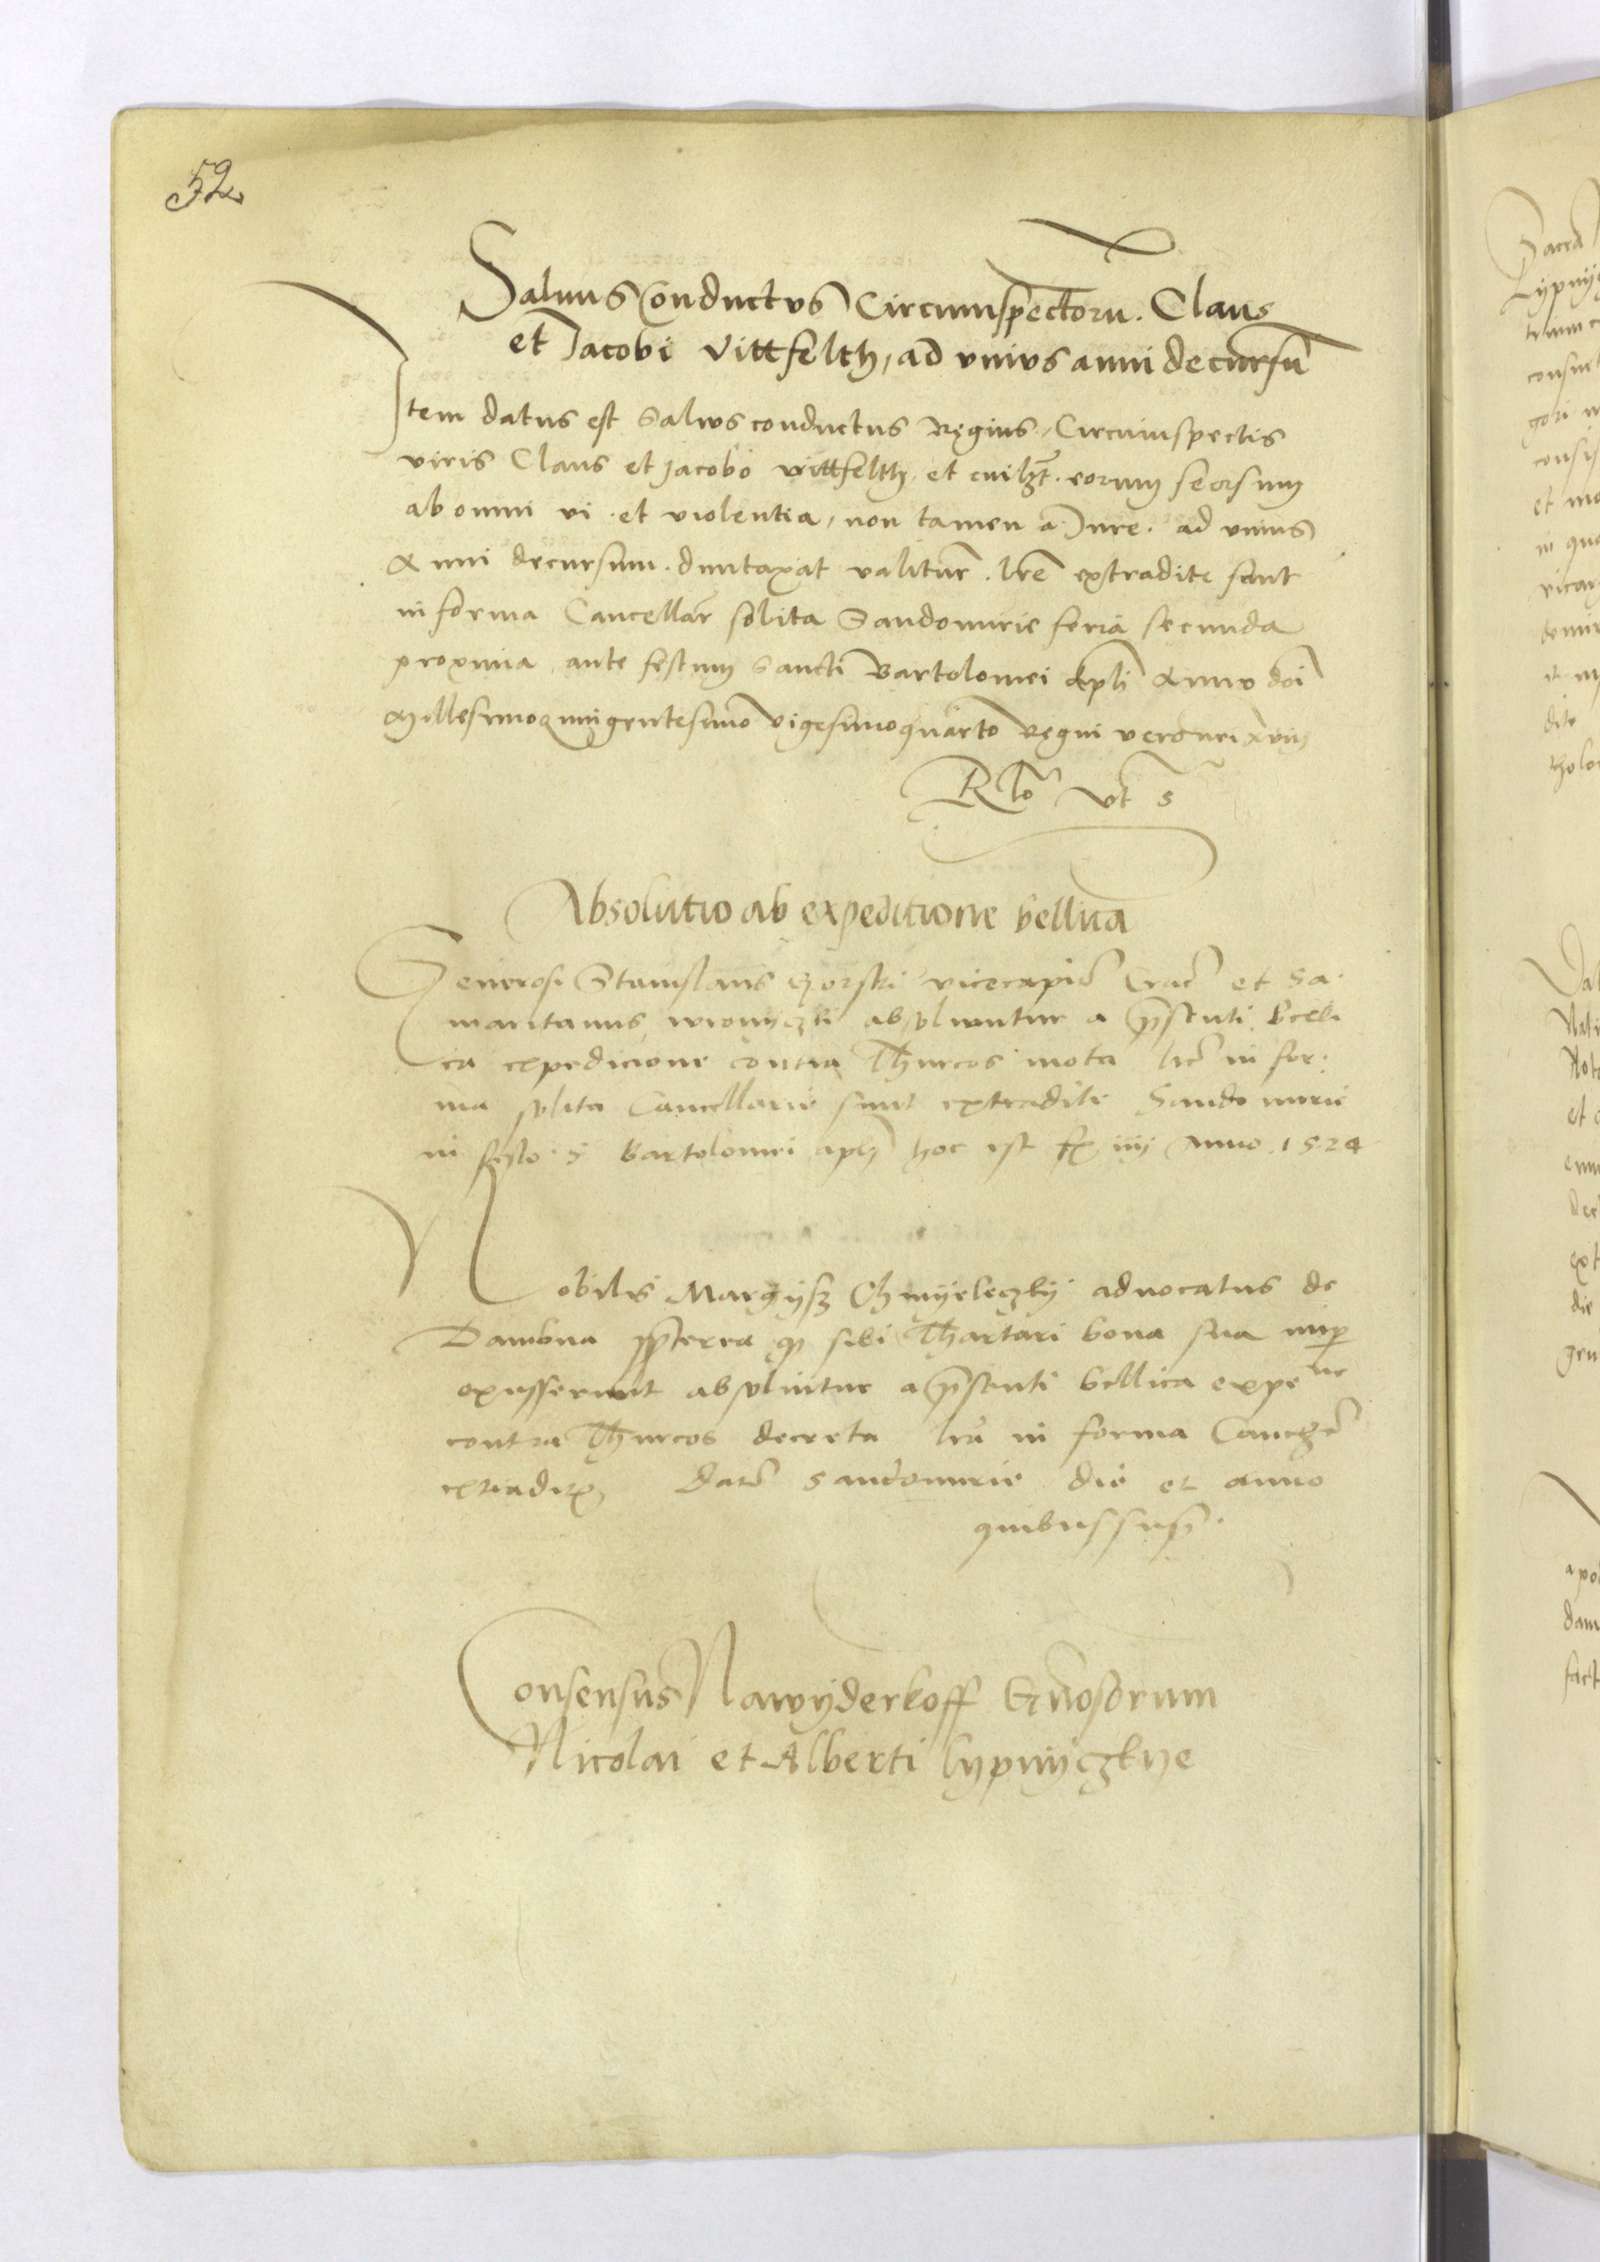 52
Salvus Conductus Circumspectoru. Claus
et Jacobi Vittfelth, ad unius anni decursu
Item datus est Salvus conductus Regius, Circumspectis
viris Claus et Jacobo vittfelth, et cuilzt. eorum seorsum
ab omni vi et violentia, non tamen a Jure. ad unius
Anni decursum. duntaxat valitur. lre extradite sunt
in forma Cancellar solita Sandomirie feria secunda
proxima ante festum Sancti Bartolomei Apli Anno doi
Millesimoquingentesimo vigesimoquarto Regni vero nri xviij
Rlo ut s
Absolutio ab expeditione bellica
Generosi Stanislaus Gorski vicecapi Crac et Sa
maritanus wronyczki absoluuntur a pnsenti Belli
ca expedicione contra Thurcos mota lre in for
ma solita Cancellarie sunt extradite Sandomirie
in festo S Bartolomei apli hoc est fr iiij Anno 1524
Nobilis Margijsz Chmyeleczky aduocatus de
Dambna ppterea qz sibi Thartari bona sua nup
exusserunt absoluitur a pnsenti bellica expe ne
contra Thurcos decreta lra in forma
extradit, dat Sandomirie die et anno
quibus sup.
Consensus Nawyderkoff Gnosorum
Nicolai et Alberti Lypnyczkye